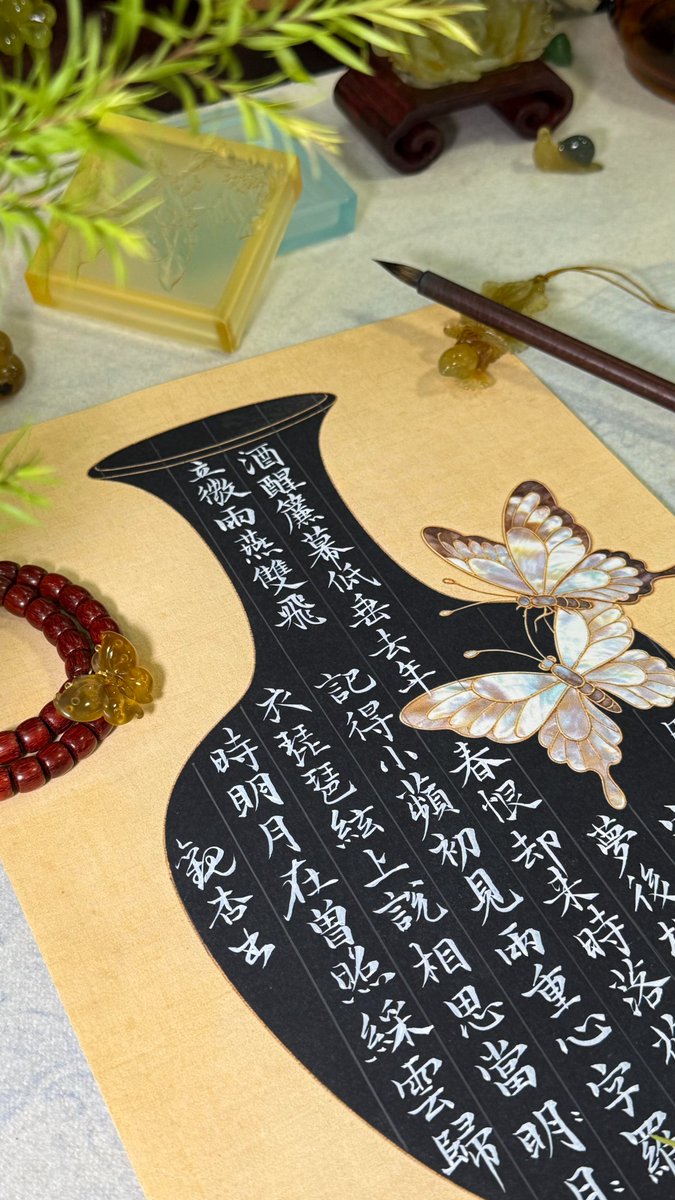 夢後
酒醒簾幕低垂去年春恨却来時落
立微雨燕雙飛記得小蘋初見兩重心字羅
衣琵琶絃上說相思當明月
時明月在曾照綵雲歸
杏书